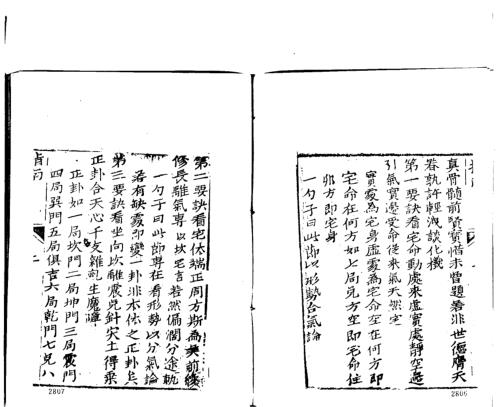 真骨髓前賢寶惜未曽題着非世德膺天
眷執許輕洩談化機
第一要訣看宅命動處來虛實處靜空邊
引氣實邊受命從來氣天然定
實處為宅身虛處為宅命空在何方即
宅命在何方如上局兌方空即宅命在
那方即宅身
一勺子曰此節以形勢合氣論
第二要訣看宅体端正周方斯為美前後
修長雖氣專以坎宅言若然偏濶分途軌
一勺子曰此節專在看形勢以分氣論
落有缺處即變一卦非本体之正卦矣
第三要訣看坐向坎離震兌針宋土得乘
正卦合天心千支雜乱生魔障
正卦如一局坎門二局坤門三局震門
四局巽門五局俱吉六局乾門七兌八
二
2806
2807